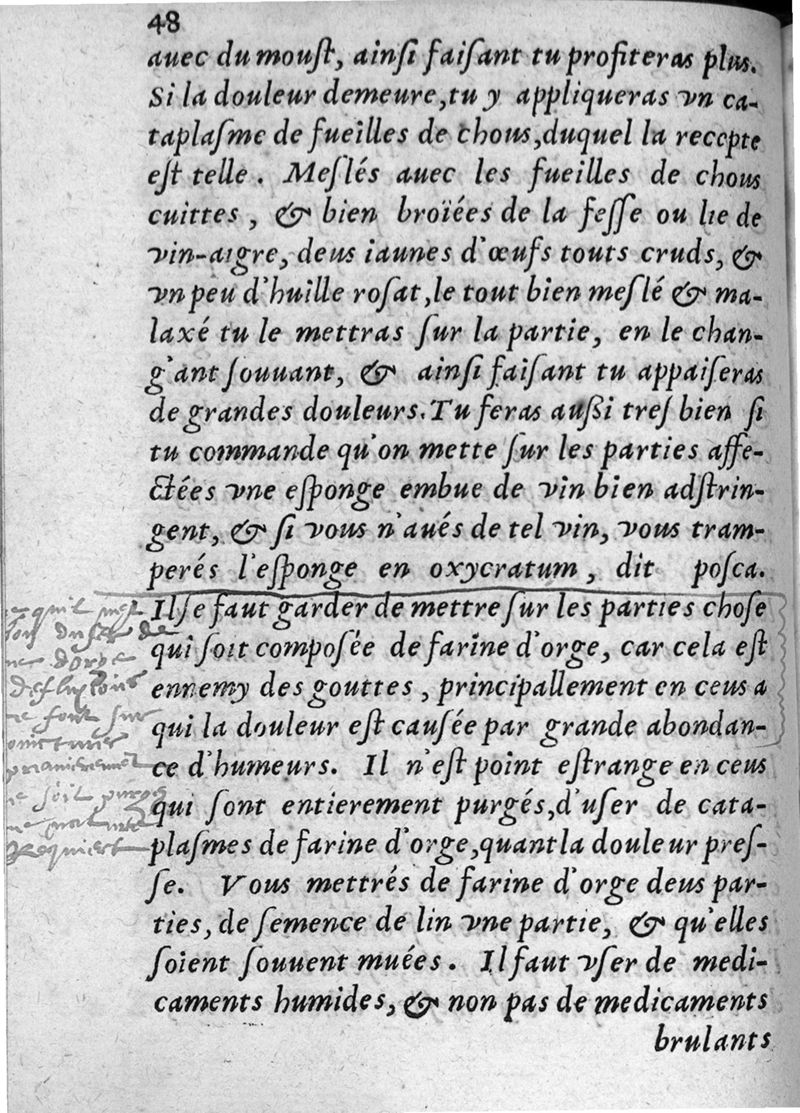 48
auec du mouſt, ainſi faiſant tu profiteras plus.
Si la douleur demeure, tu y appliqueras vn ca-
taplaſme de fueilles de chous, duquel la recepte
eſt telle. Meſlés auec les fueilles de chous
cuittes, & bien broïées de la feſſe ou lie de
vin-aigre, deus iaunes d'œufs touts cruds, &
vn peu d'huille roſat, le tout bien meſlé & ma-
laxé tu le mettras ſur la partie, en le chan-
g'ant ſouuant, & ainſi faiſant tu appaiſeras
de grandes douleurs. Tu feras auſſi treſ bien ſi
tu commande qu'on mette ſur les parties affe-
ctées vne eſponge embue de vin bien adſtrin-
gent, & ſi vous n'aués de tel vin, vous tram-
perés l'eſponge en oxycratum, dit poſca.
Il ſe faut garder de mettre ſur les parties choſe
qui ſoit compoſée de farine d'orge, car cela eſt
ennemy des gouttes, principallement en ceus a
qui la douleur eſt cauſée par grande abondan-
ce d'humeurs. Il n'eſt point eſtrange en ceus
qui ſont entierement purgés, d'vſer de cata-
plaſmes de farine d'orge, quant la douleur preſ-
ſe. Vous mettrés de farine d'orge deus par-
ties, de ſemence de lin vne partie, & qu'elles
ſoient ſouuent muées. Il faut vſer de medi-
caments humides, & non pas de medicaments
brulants
quil
de
d'orge
defluxions
ſoit purge
Requiert